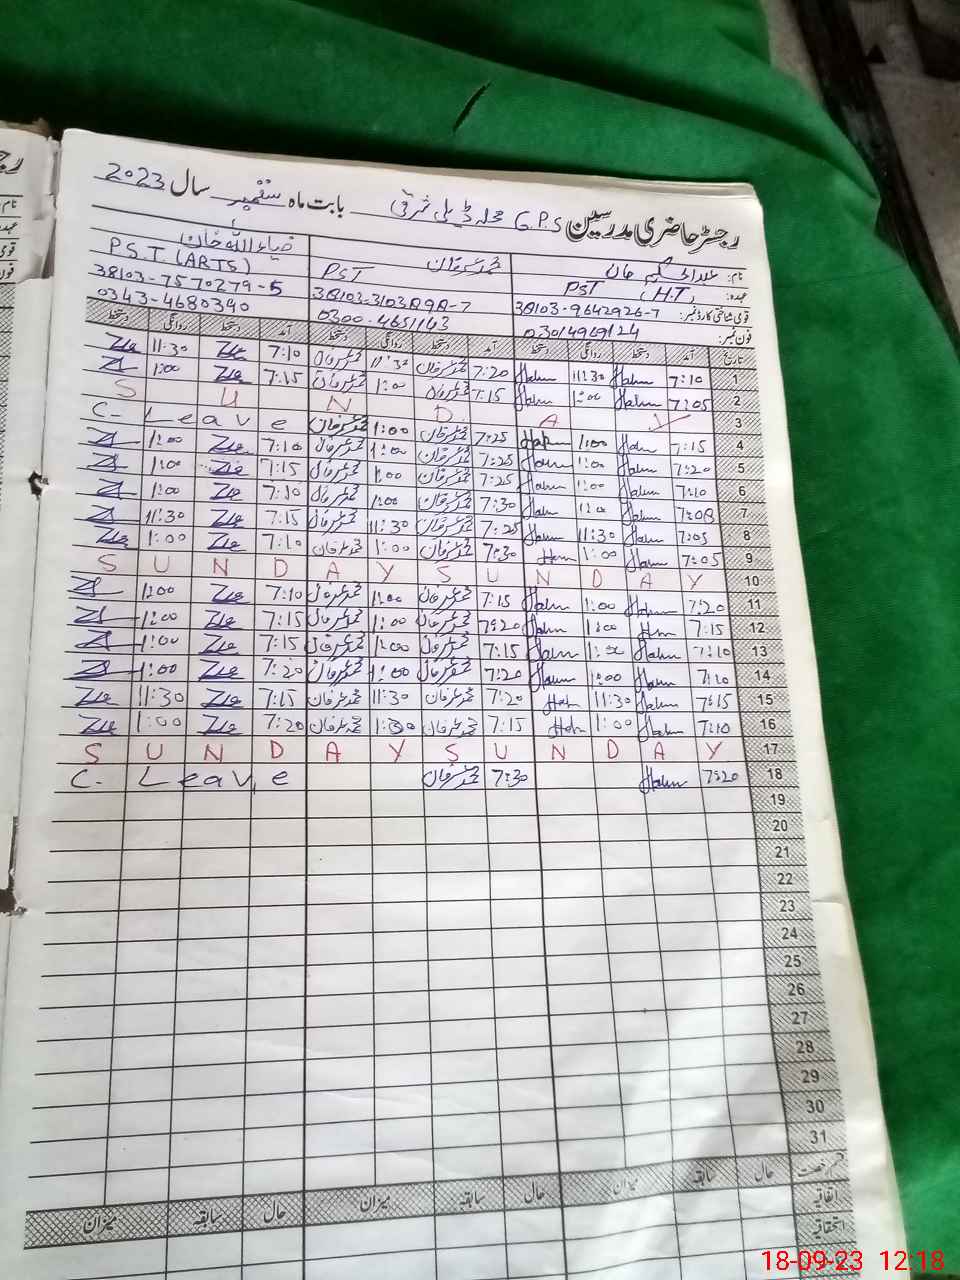 رجسٹر حاضری مدرسین G.P.S محلہ ڈیلی شرقی بابت ماہ ستمبر سال 2023
نام: عبدالحکیم خان محمد عرفان ضیاء اللہ خان
عہدہ: PST (H.T) PST P.S.T (ARTS)
قومی شناختی کارڈ نمبر: 38103-9642926-7 38103-7570279-5
فون نمبر: 03014969124 0300-4651143 0343-4680390
تاریخ آمد دستخط روانگی دستخط آمد دستخط روانگی دستخط آمد دستخط روانگی دستخط
1 7:10 Halim 11:30 Halim 7:20 محمد عرفان 11:30 محمد عرفان 7:10 Zia 11:30 Zia
2 7:05 Halim 1:00 Halim 7:15 محمد عرفان 1:00 محمد عرفان 7:15 Zia 1:00
3 S U N D A Y
4 7:15 Halim 1:00 Halim 7:25 محمد عرفان 1:00 محمد عرفان C- Leave
5 7:20 Halim 1:00 Halim 7:25 محمد عرفان 1:00 محمد عرفان 7:10 Zia 1:00
6 7:10 Halim 1:00 Halim 7:25 محمد عرفان 1:00 محمد عرفان 7:15 Zia 1:00
7 Halim Halim 7:30 محمد عرفان 1:00 محمد عرفان 7:10 Zia 1:00
8 7:05 Halim 11:30 Halim 7:25 محمد عرفان 11:30 محمد عرفان 7:15 Zia 11:30
9 7:05 Halim 1:00 Halim 7:30 محمد عرفان 1:00 محمد عرفان 7:10 Zia 1:00 Zia
10 S U N D A Y S U N D A Y
11 7:20 Halim 1:00 Halim 7:15 محمد عرفان 1:00 محمد عرفان 7:10 Zia 1:00
12 7:15 Halim 1:00 Halim 7:20 محمد عرفان 1:00 محمد عرفان 7:15 Zia 1:00
13 7:10 Halim 1:00 Halim 7:15 محمد عرفان 1:00 محمد عرفان 7:15 Zia 1:00
14 7:10 Halim 1:00 Halim 7:20 محمد عرفان 1:00 محمد عرفان 7:20 Zia 1:00
15 7:15 Halim 11:30 Halim 7:20 محمد عرفان 11:30 محمد عرفان 7:15 Zia 11:30 Zia
16 7:10 Halim 1:00 Halim 7:15 محمد عرفان 1:00 محمد عرفان 7:20 Zia 1:00 Zia
17 S U N D A Y S U N D A Y
18 7:20 Halim 7:30 محمد عرفان C- Leave
19
20
21
22
23
24
25
26
27
28
29
30
31
قسم رخصت حال سابقہ میزان حال سابقہ میزان حال سابقہ میزان
اتفاقیہ
استحقاقیہ
18-09-23 12:18